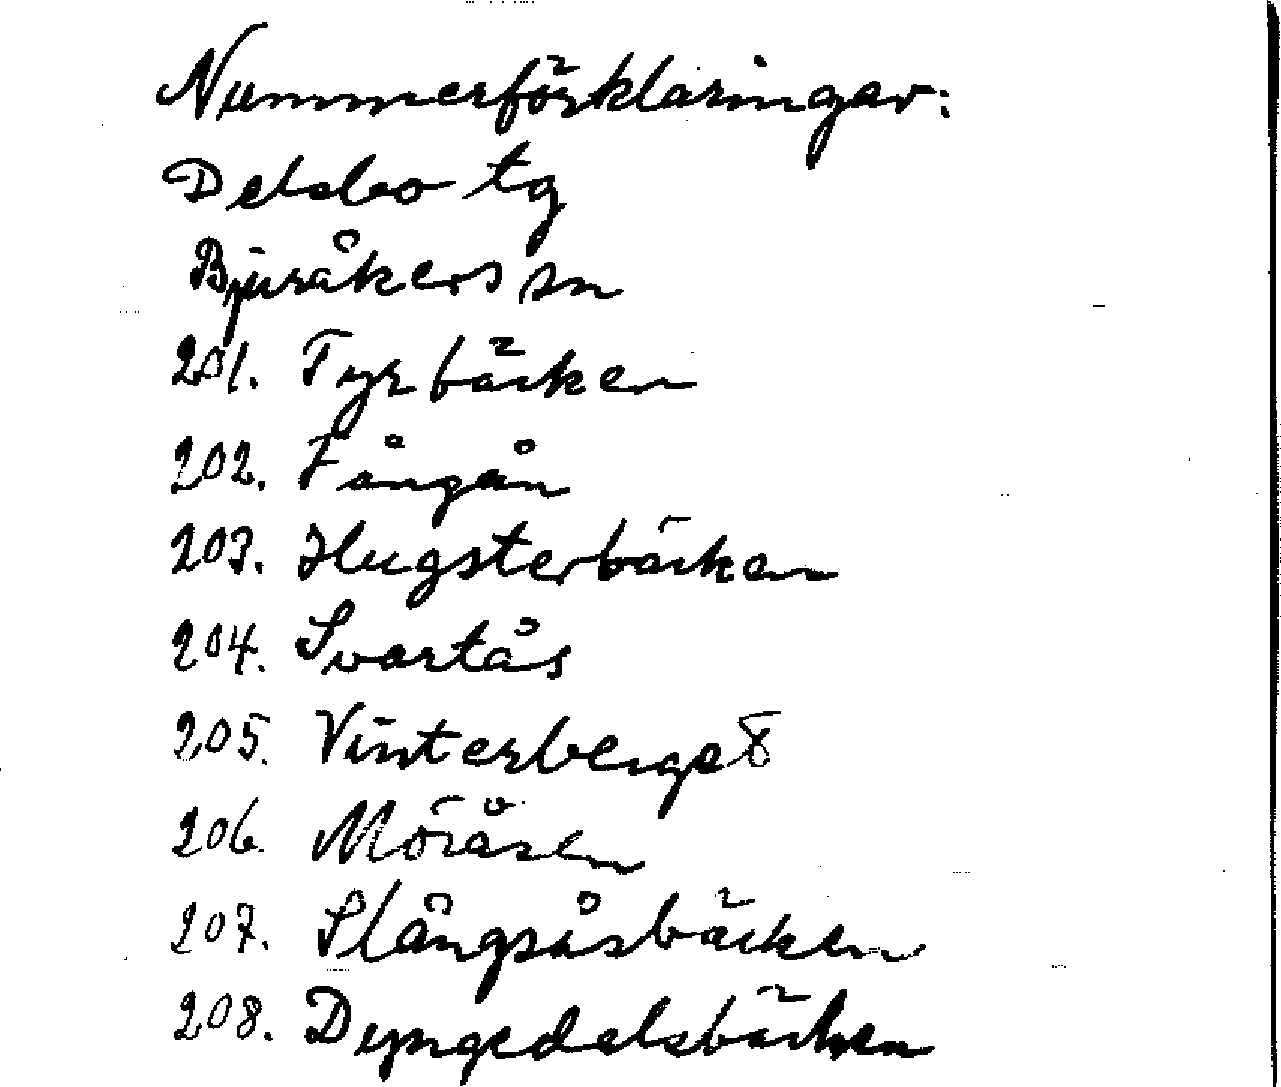 Nummerförklaringar:
Delsbo tg
Bjuråkers sn
201. Tyrbäcken
202. Fångån
203. Hugsterbäcken
204. Svartås
205. Vinterberget
206. Möråsen
207. Slångsåsbäcken
208. Dyngedalsbäcken